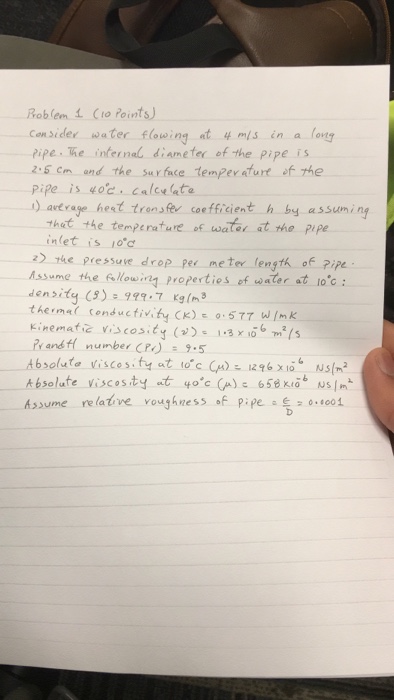 Problem 1 (10 Points)
Consider water flowing at 4 m/s in a long
pipe. The internal diameter of the pipe is
2.5 cm and the surface temperature of the
pipe is 40°c. calculate
1) average heat transfer coefficient h by assuming
that the temperature of water at the pipe
inlet is 10°c
2) the pressure drop per meter length of pipe.
Assume the following properties of water at 10°c:
density (ρ) = 999.7 kg/m³
thermal conductivity (K) = 0.577 W/mK
Kinematic viscosity (ν) = 1.3 x 10⁻⁶ m²/s
Prandtl number (Pr) = 9.5
Absolute viscosity at 10°c (μ) = 1296 x10⁻⁶ Ns/m²
Absolute viscosity at 40°c (μ) = 658 x10⁻⁶ Ns/m²
Assume relative roughness of pipe = ε/D = 0.0001